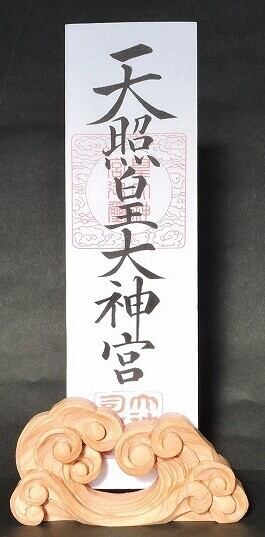 天照皇大神宮